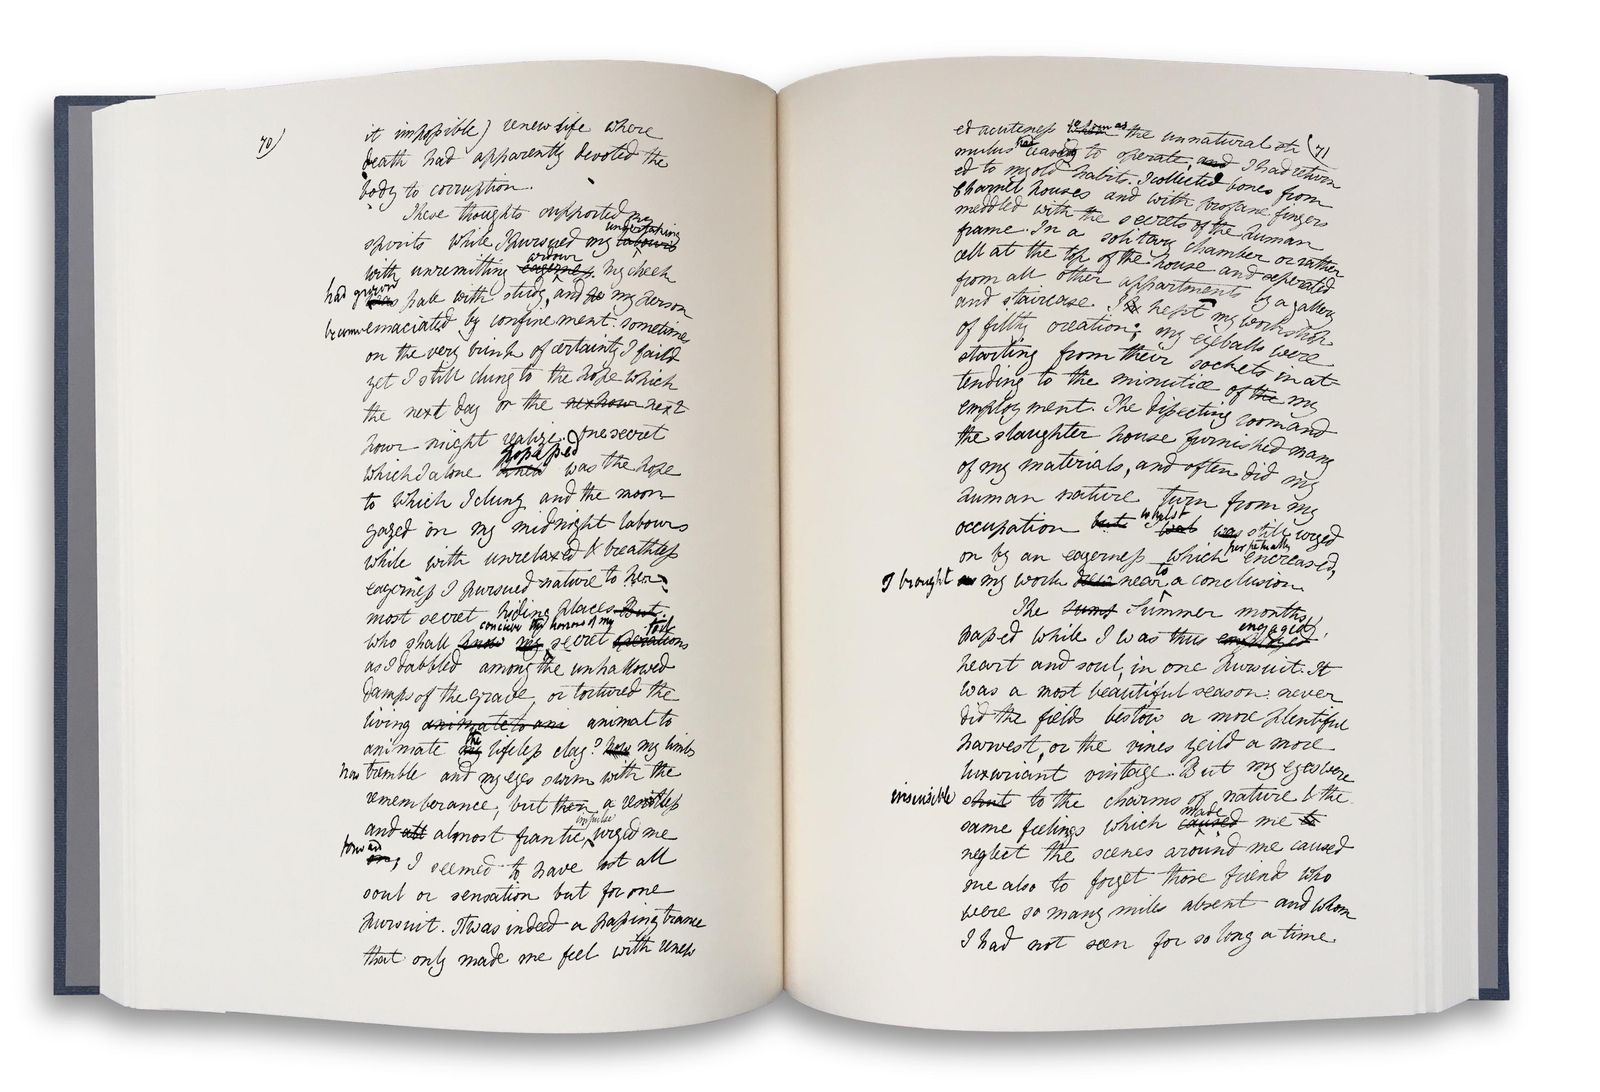 70)
it impossible) renew life where
death had apparently devoted the
body to corruption.
These thoughts supported my
undertaking
spirits while I pursued my labours
ardour
with unremitting eagerness. My cheek
had grown
was pale with study, and so my person
become emaciated by confinement. sometimes
on the very brink of certainty I faild
yet I still clung to the hope which
the next day or the nexhour next
hour might realize. The secret
possessed
which I alone knew was the hope
to which I clung and the moon
gazed on my midnight labours
while with unrelaxed & breathless
eagerness I pursued nature to her
most secret hiding places. But
conceive the horrors of my toil
who shall know my secret operations
as I dabbled among the unhallowed
damps of the grave, or tortured the
living animate to ani animal to
the
animate my lifeless clay? how my limbs
now tremble and my eyes swim with the
rememberance; but then a restless
impulse
and all almost frantic, urged me
forward
on, I seemed to have lost all
soul or sensation but for one
pursuit. It was indeed a passing trance
that only made me feel with renew
(71
so soon as
ed acuteness when the unnatural sti
had
mulus ceasing to operate, and I had return
ed to my old habits. I collected bones from
charnel houses and with profane fingers
meddled with the secrets of the human
frame. In a solitary chamber or rather
cell at the top of the house and seperated
from all other appartments by a gallery
and staircase. I kept my workshop
of filthy creation; my eyeballs were
starting from their sockets in at-
tending to the minutiæ of the my
employment. The dissecting room and
the slaughter house furnished many
of my materials, and often did my
human nature turn from my
whilst
occupation but was still urged
perpetually
on by an eagerness which encreased,
I brought my work near to a conclusion.
The sums Summer months
engaged,
passed while I was thus employed
heart and soul, in one pursuit. It
was a most beautiful season. never
did the fields bestow a more plentiful
harvest, or the vines yeild a more
luxuriant vintage. But my eyes were
insensible shut to the charms of nature & the
made
same feelings which caused me to
neglect the scenes around me caused
me also to forget those friends who
were so many miles absent and whom
I had not seen for so long a time.